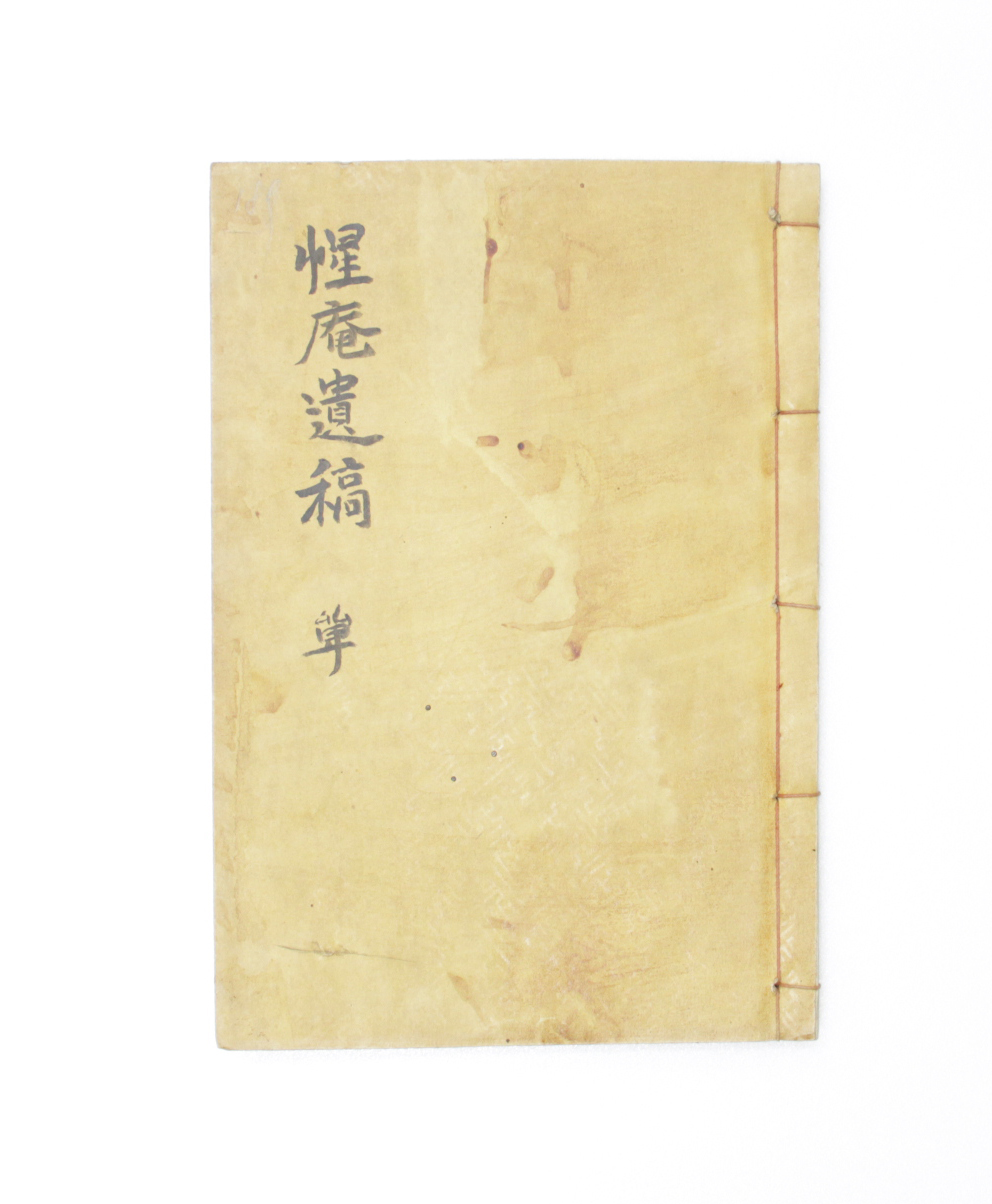 惺庵遺稿 單